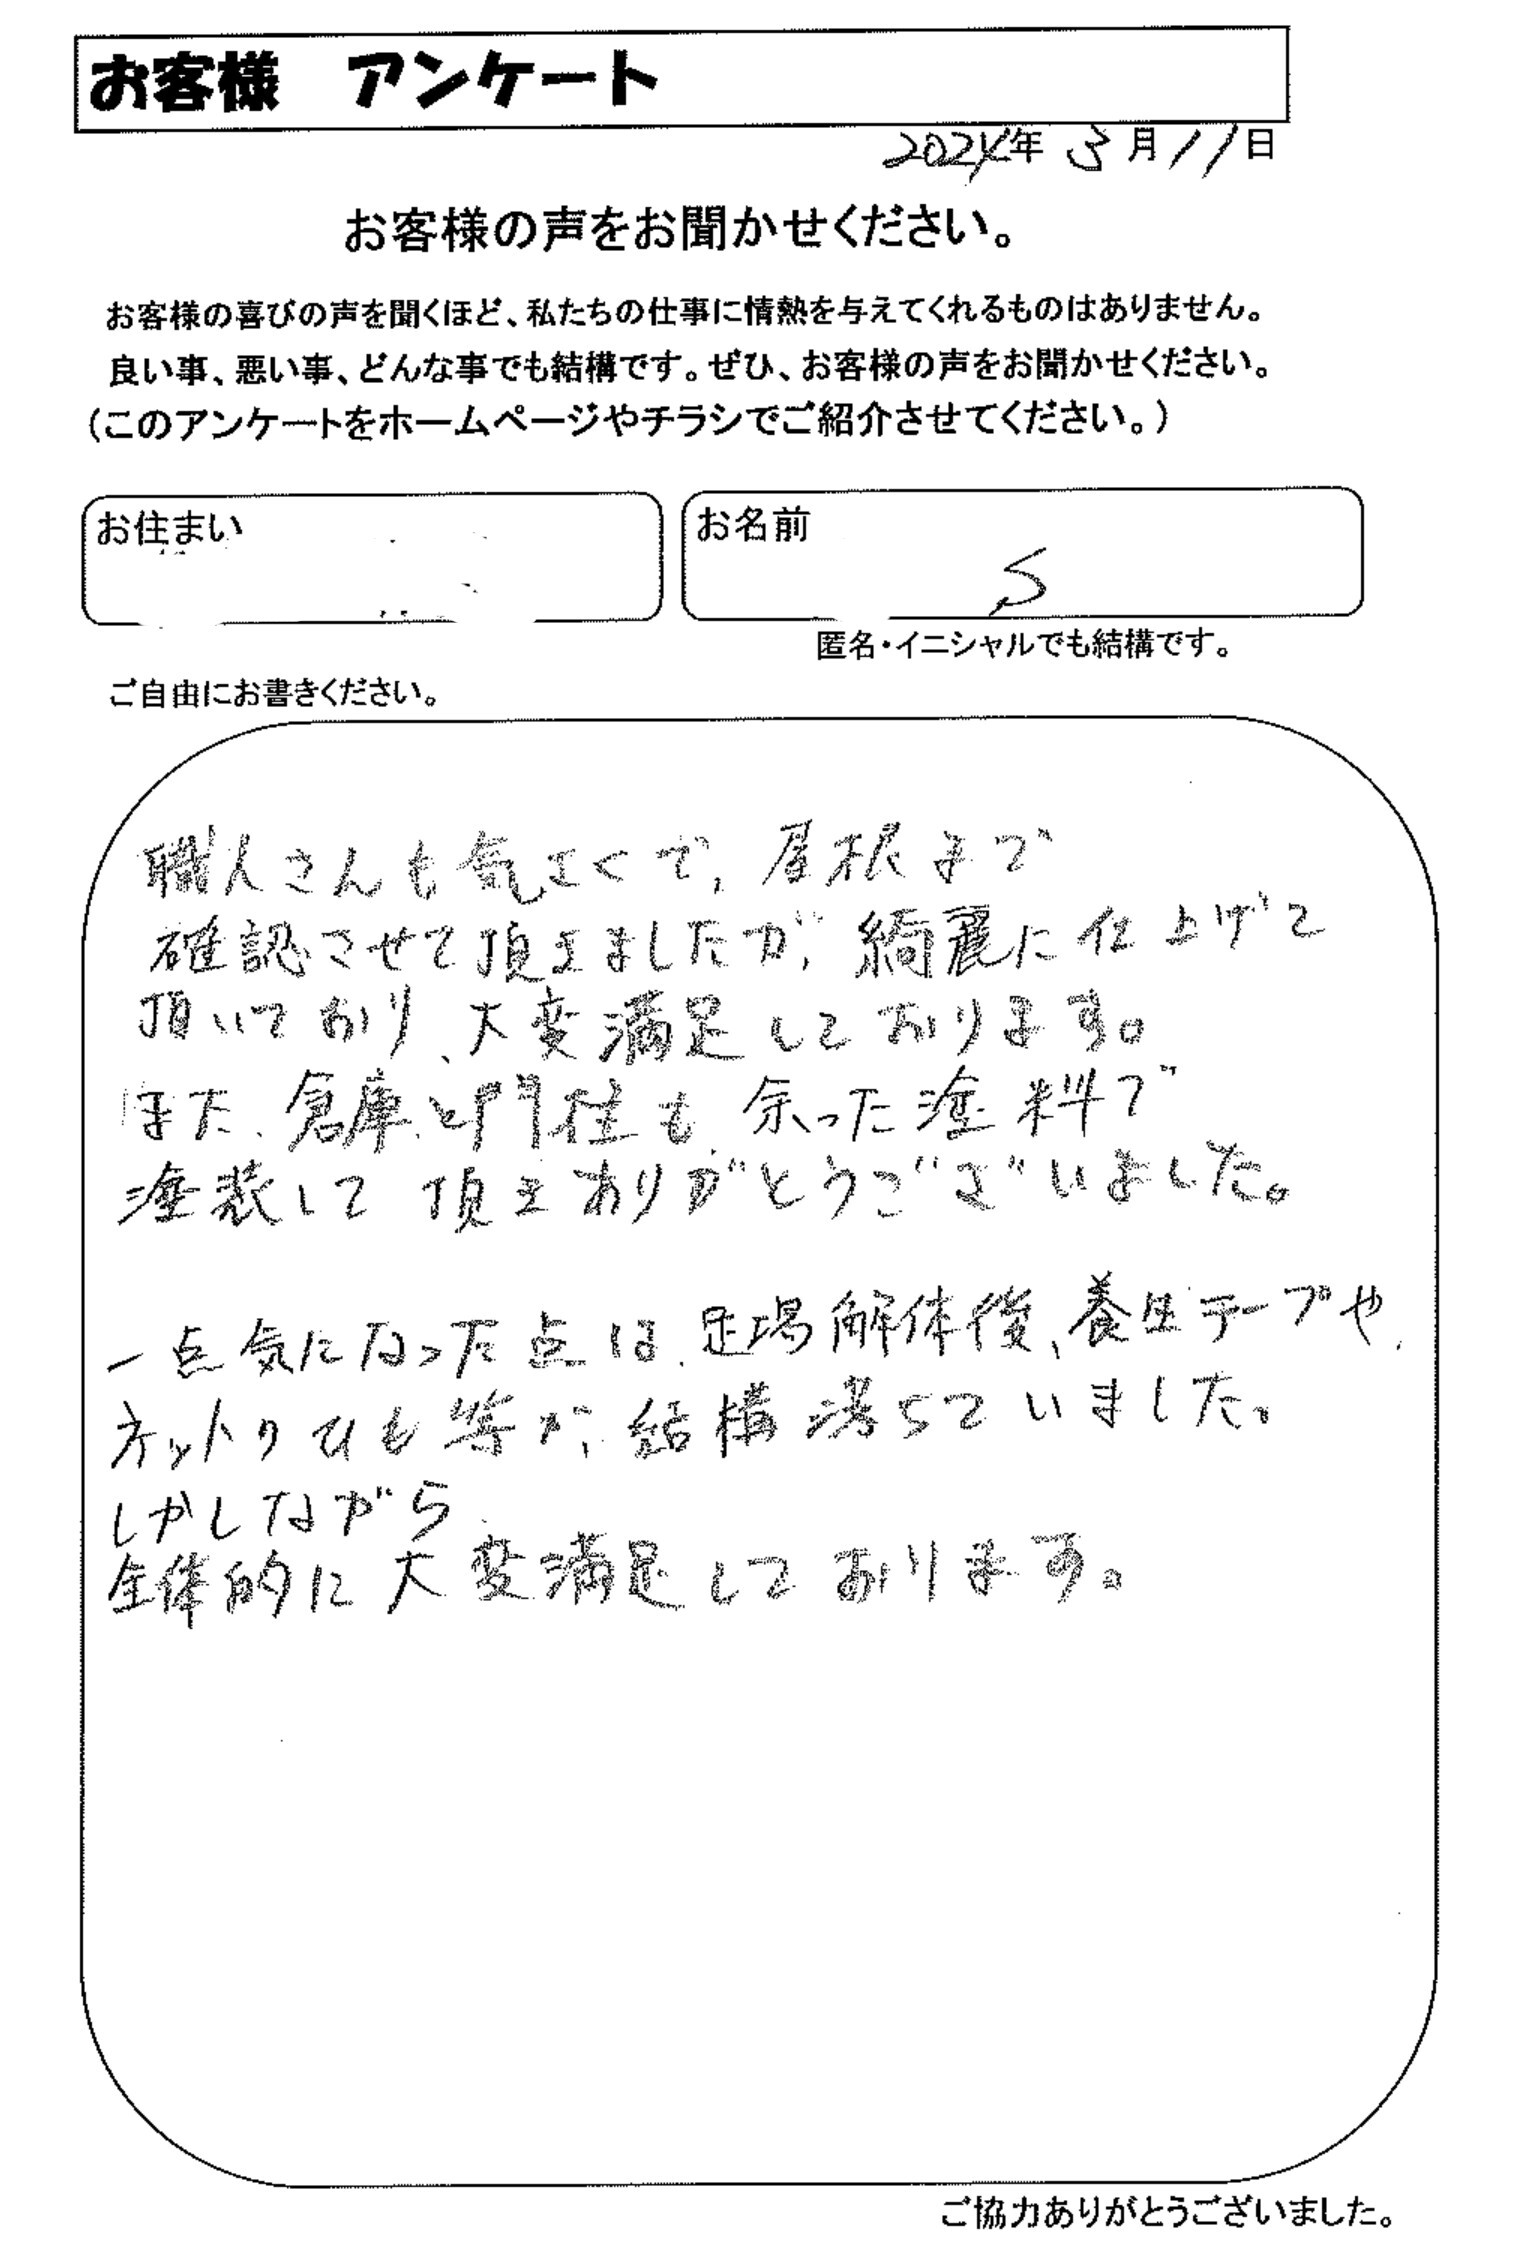 お客様 アンケート
2024年 3月11日
お客様の声をお聞かせください。
お客様の喜びの声を聞くほど、私たちの仕事に情熱を与えてくれるものはありません。
良い事、悪い事、どんな事でも結構です。ぜひ、お客様の声をお聞かせください。
(このアンケートをホームページやチラシでご紹介させてください。)
お住まい
お名前
S
匿名・イニシャルでも結構です。
ご自由にお書きください。
職人さんも気さくで、屋根まで
確認させて頂きましたが、綺麗に仕上げて
頂いており、大変満足しております。
また、倉庫と門柱も、余った塗料で
塗装して頂きありがとうございました。
一点気になった点は、足場解体後、養生テープや、
ネットのひも等が、結構落ちていました。
しかしながら、
全体的に大変満足しております。
ご協力ありがとうございました。